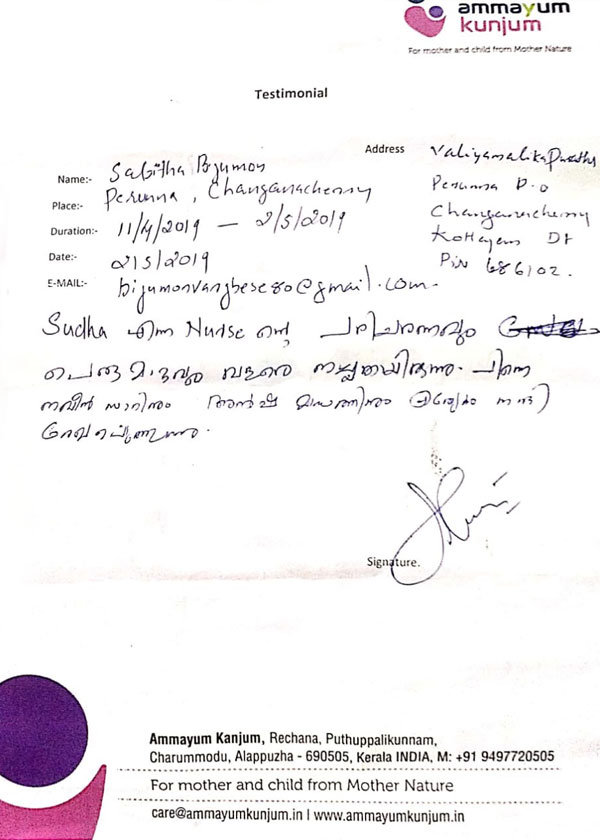 ammayum
kunjum
For mother and child from Mother Nature
Testimonial
Name:- Sabitha Bijumon
Place:- Perunna, Changanacherry
Duration:- 11/4/2019 — 2/5/2019
Date:- 2/5/2019
E-MAIL:- bijumonvarghese80@gmail.com.
Address
Perunna P.O
Changanacherry
Kottayam Dt
Pin 686102.
Sudha എന്ന Nurse ന്റെ പരിചരണവും
പെരുമാറ്റവും വളരെ നല്ലതായിരുന്നു. പിന്നെ
നവീൻ സാറിനും നന്ദി
രേഖപ്പെടുത്തുന്നു.
Signature.
Ammayum Kanjum, Rechana, Puthuppalikunnam,
Charummodu, Alappuzha - 690505, Kerala INDIA, M: +91 9497720505
For mother and child from Mother Nature
care@ammayumkunjum.in | www.ammayumkunjum.in